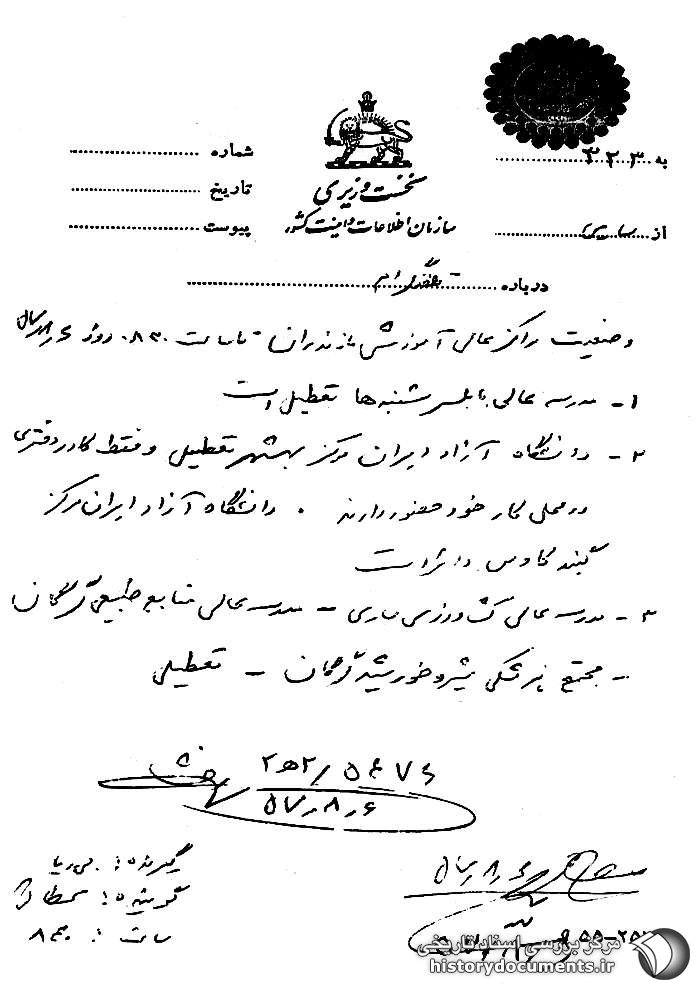 به ۳۲۳
شماره
نخست وزیری
تاریخ
سازمان اطلاعات و امنیت کشور
از ساری
پیوست
درباره تلفنگرام
وضعیت مراکز عالی آموزشی مازندران تا ساعت ۰۸۳۰ روز ۵۷٫۸٫۶
۱- مدرسه عالی بابلسر شنبه‌ها تعطیل است
۲- دانشگاه آزاد ایران مرکز بهشهر تعطیلی و فقط کادر دفتری
در محل کار خود حضور دارند . دانشگاه آزاد ایران مرکز
گنبد کاوس دائر است
۳- مدرسه عالی کشاورزی ساری - مدرسه عالی منابع طبیعی گرگان
- مجتمع پزشکی شیر و خورشید گرگان - تعطیلی
۲ه۲/۵۴۷۶
۵۷٫۸٫۶
گیرنده:
۵۷٫۸٫۶
گوینده:
ساعت: ۸۴۰
مرکز بررسی اسناد تاریخی
historydocuments.ir